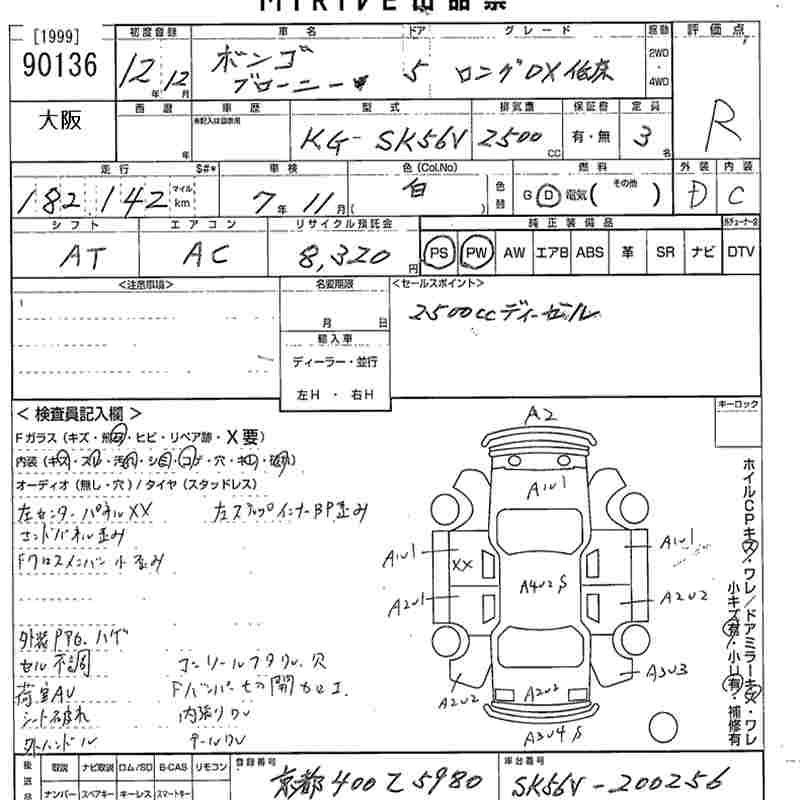 [1999]
90136
初度登録
12年12月
車名
ボンゴ
ブローニー
ドア
5
グレード
ロングDX低床
駆動
2WD
・
4WD
評価点
R
大阪
西暦
年
車歴
有記入は自家用
型式
KG-SK56V
排気量
2500
CC
保証書
有・無
定員
3名
走行
S#*
182,142
マイル
km
車検
7年11月
色(Col.No)
白
( )
色替
燃料
G D 電気( その他 )
外装
D
内装
C
シフト
AT
エアコン
AC
リサイクル預託金
8,320円
純正装備品
PS PW AW エアB ABS 革 SR ナビ DTV
<注意事項>
名変期限
月 日
輸入車
ディーラー・並行
左H・右H
<セールスポイント>
2500ccディーゼル
キーロック
<検査員記入欄>
Fガラス(キズ・無・ヒビ・リペア跡・X要)
内装(キズ・スレ・汚れ・シミ・コゲ・穴・
オーディオ(無し・穴)/タイヤ(スタッドレス)
左センターパネルXX
左ステップインナーBP歪み
エンドパネル歪み
Fクロスメンバー小歪み
外装PPG.ハゲ
セル不調
コンソールフタワレ穴
荷室AU
シート破れ
内張りワレ
外ハンドル
テールワレ
A2
A1U1
A1U1
XX
A1U1
A2U1
A4U2S
A2U2
A2U2
A2U2
A3U3
A3U4S
ホイルCPキズ・ワレ/ドアミラーキズ・ワレ
小キズ有・小U有・補修有
後送品
取説 ナビ取説 ロム/SD B-CAS リモコン
ナンバー スペアキー キーレス スマートキー
登録番号
京都400て5980
車台番号
SK56V-200256